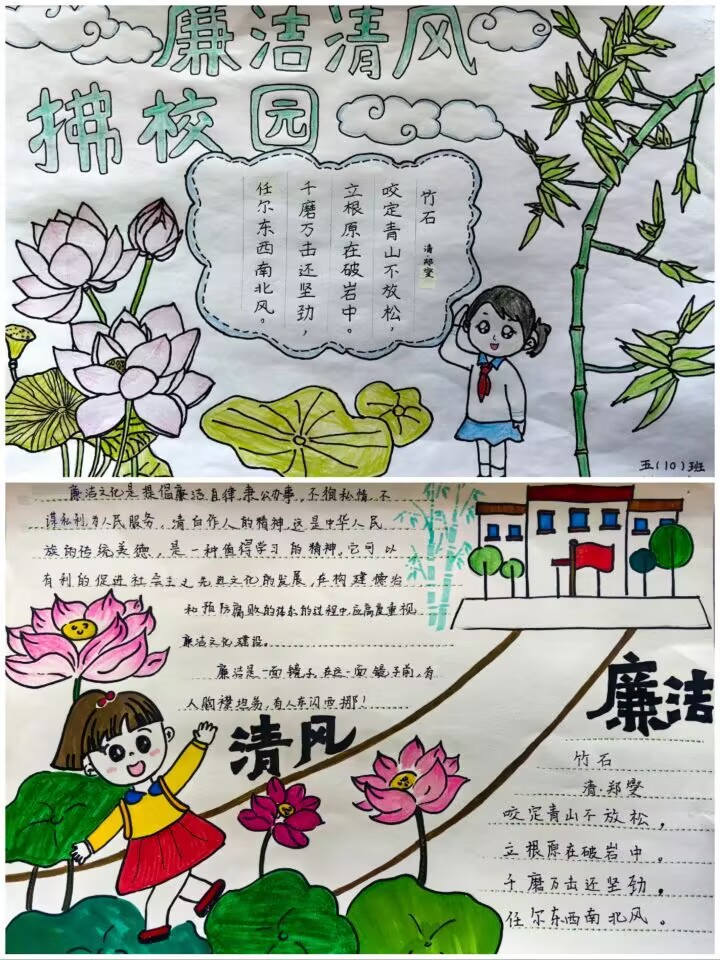 廉洁清风
拂校园
竹石
清·郑燮
咬定青山不放松，
立根原在破岩中。
千磨万击还坚劲，
任尔东西南北风。
五(10)班
廉洁文化是提倡廉洁自律,秉公办事,不徇私情,不
谋私利,为人民服务,清白作人的精神,这是中华人民
族的传统美德，是一种值得学习的精神。它可以
有利的促进社会主义先进文化的发展,在构建德治
和预防腐败的体系的过程中,应高度重视
廉洁文化建设。
廉洁是一面镜子,在这一面镜子前,有
人胸襟坦荡,有人东闪西挪!
清风
廉洁
竹石
清.郑燮
咬定青山不放松，
立根原在破岩中。
千磨万击还坚劲，
任尔东西南北风。